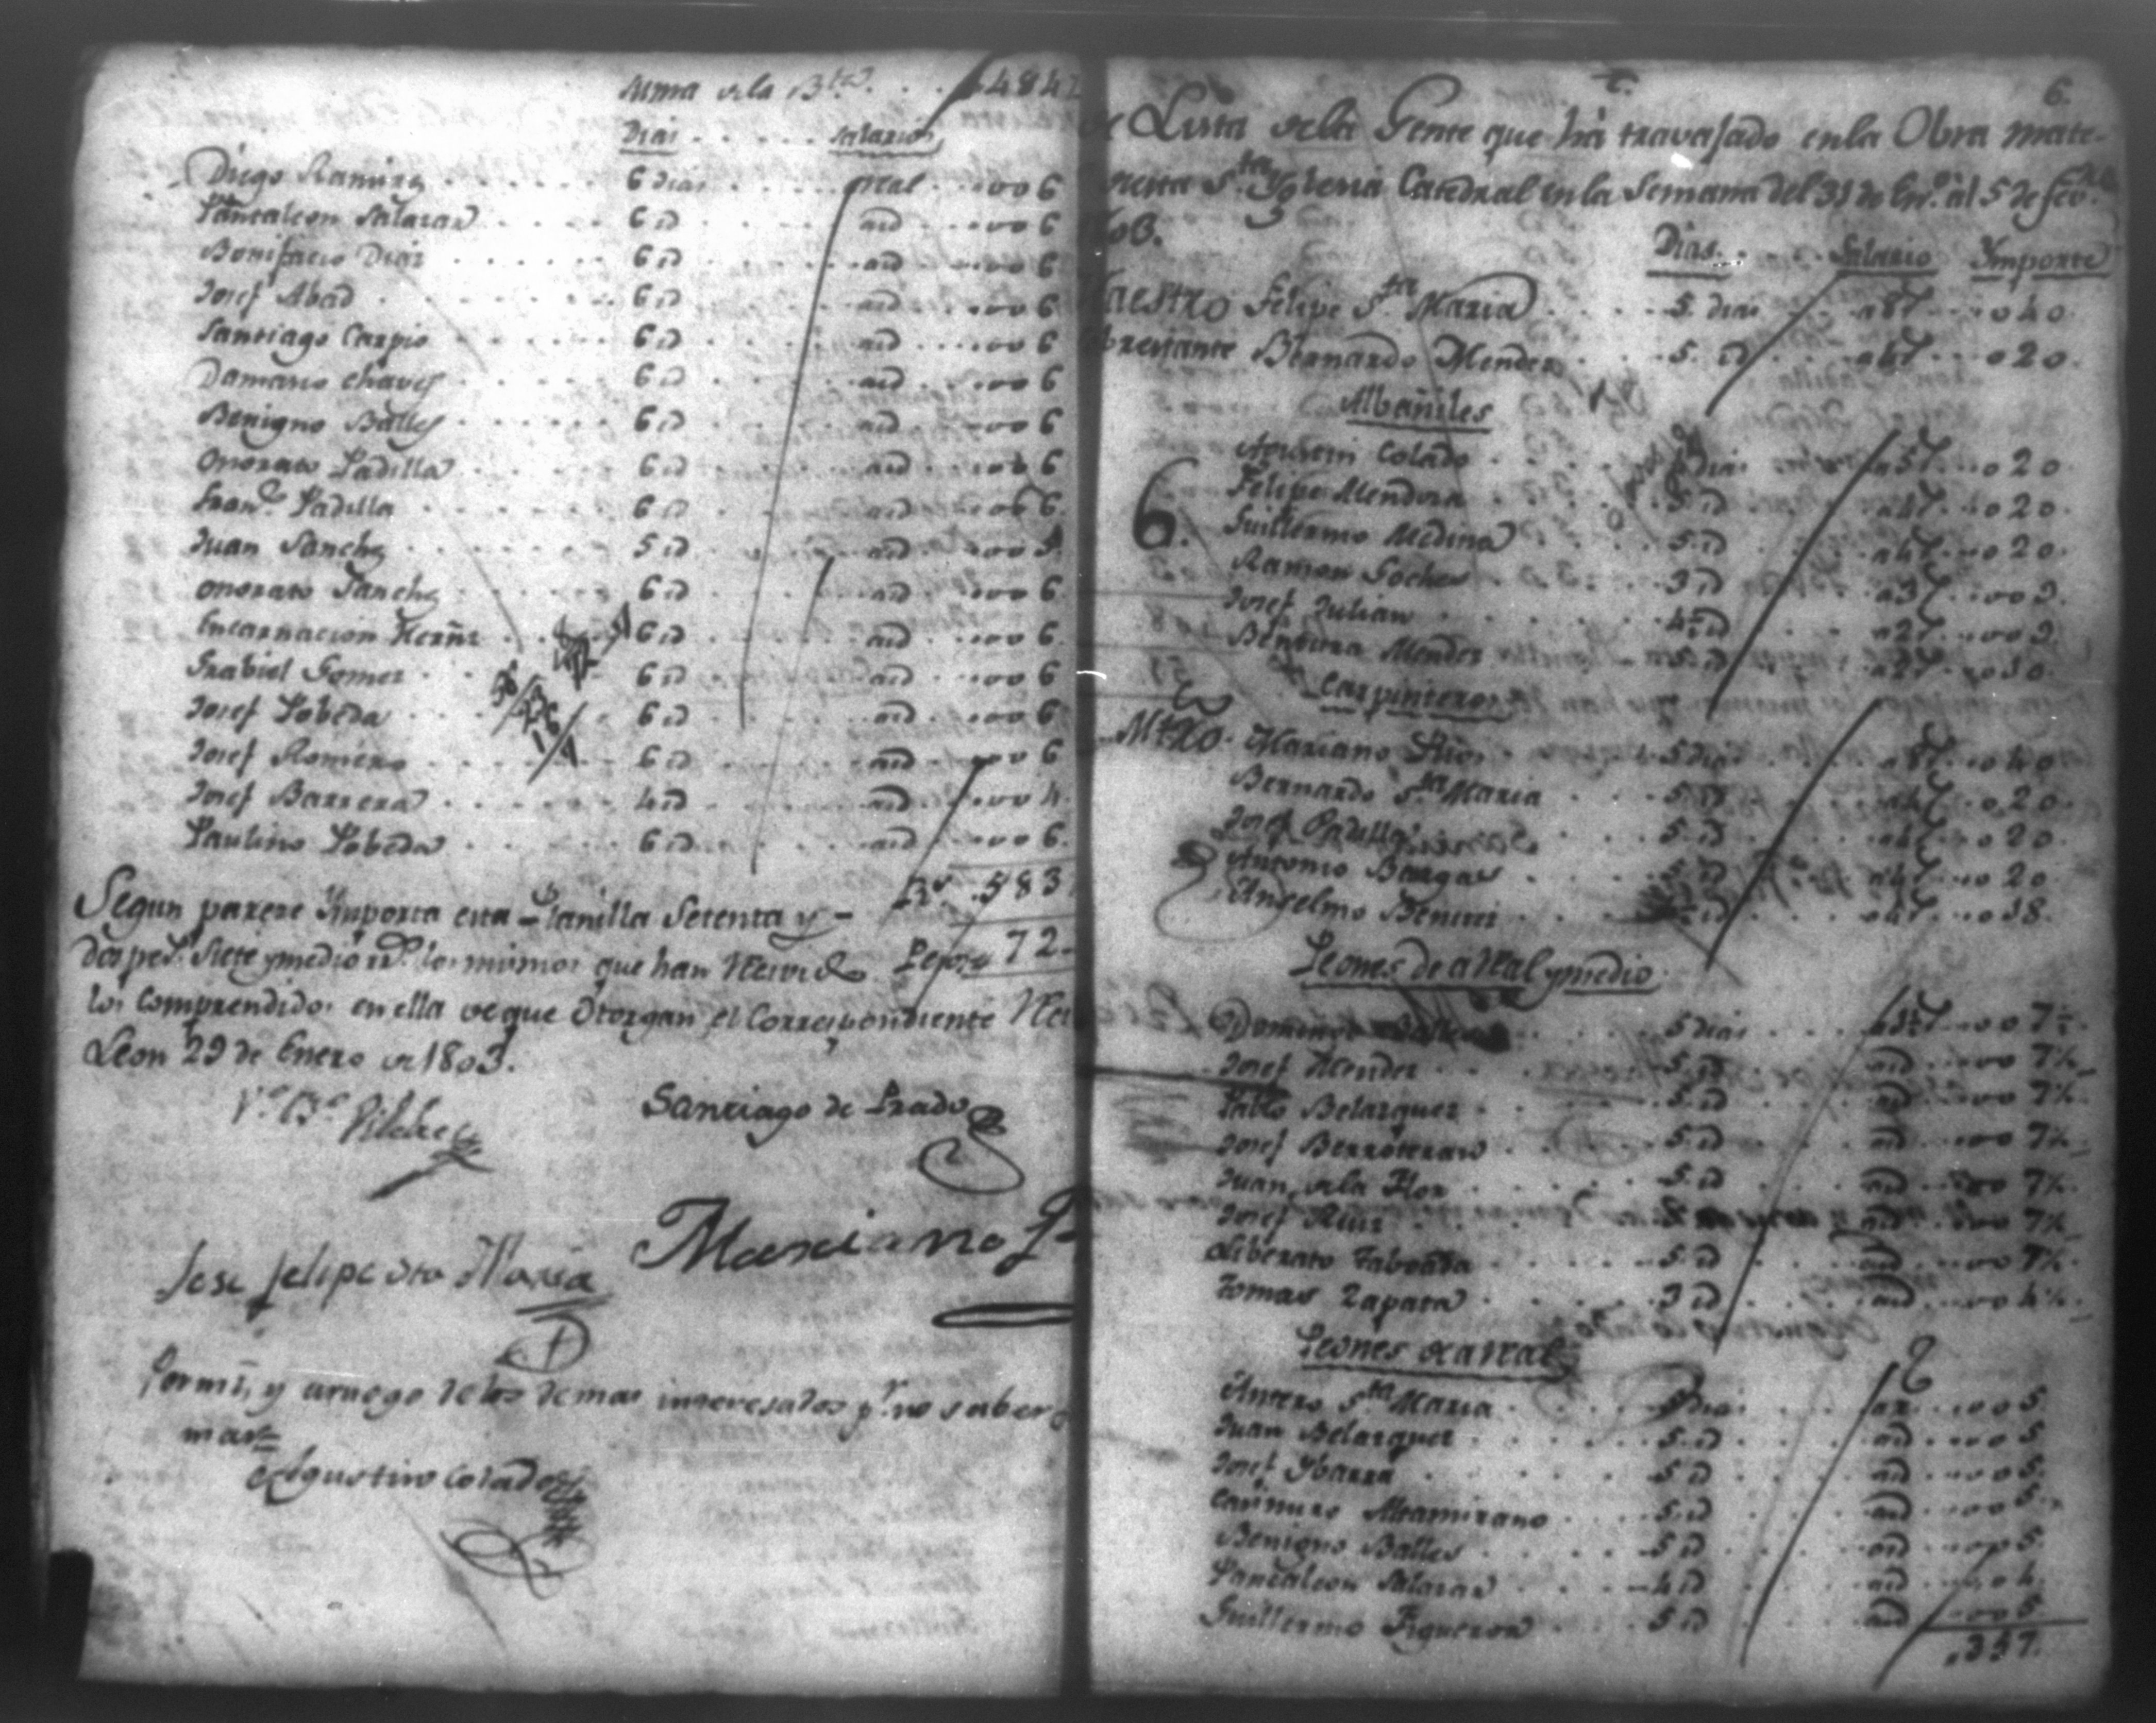 Suma de la B.ta . . . 484 1/2
Dias . . . . . Salarios
Diego Ramirez . . . . 6 dias . . . . a real . . . 006
Pantaleon Salazar . . . . 6 id . . . . aid . . . 006
Bonifacio Diaz . . . . 6 id . . . . aid . . . 006
Josef Abad . . . . 6 id . . . . aid . . . 006
Santiago Carpio . . . . 6 id . . . . aid . . . 006
Damacio Chaves . . . . 6 id . . . . aid . . . 006
Benigno Balles . . . . 6 id . . . . aid . . . 006
Onorato Padilla . . . . 6 id . . . . aid . . . 006
Fran.co Padilla . . . . 6 id . . . . aid . . . 006
Juan Sanchez . . . . 5 id . . . . aid . . . 005
Onorato Sanchez . . . . 6 id . . . . aid . . . 006
Encarnacion Herñz . . . . 6 id . . . . aid . . . 006
Grabiel Gomez . . . . 6 id . . . . aid . . . 006
Josef Pobeda . . . . 6 id . . . . aid . . . 006
Josef Romero . . . . 6 id . . . . aid . . . 006
Josef Barrera . . . . 4 id . . . . aid . . . 004
Paulino Pobeda . . . . 6 id . . . . aid . . . 006
R.s . 583
Segun parece Ymporta esta Planilla Setenta y
dos pes.s siete y medio r.s los mismos que han Recivido Pesos 72
los Comprendidos en ella de que Otorgan el Correspondiente Rec
Leon 29 de Enero de 1803.
V.o B.o Vilches
Santiago de Prado
Jose Felipe Sta Maria
Mariano
Por mi, y aruego de los demas interesados p.r no saber
mar=
Agustino Colado
6.
Lista dela Gente que há travajado enla Obra mate-
desta S.ta Yglesia Catedral en la Semana del 31 de En.o al 5 de Feb.
803.
Dias . . . Salario Ymporte
Maestro Felipe S.ta Maria . . . 5 dias . . . a 8 r . . . 040
Sobrestante Bernardo Mendez . . . 5 id . . . a 4 r . . . 020
Albañiles
Agustin Colado . . . dias . . . a 5 r . . . 020
6. Felipe Mendoza . . . 5 id . . . a 4 r . . . 020
Guillermo Medina . . . 5 id . . . a 4 r . . . 020
Ramon Goche . . . 3 id . . . a 3 r . . . 009
Josef Julian . . . 4 1/2 id . . . a 2 r . . . 009
Bentura Mendez . . . 5 id . . . a 2 r . . . 010
Carpinteros
Mtro. Mariano Rios . . . 5 dias . . . a 8 r . . . 040
Bernardo S.ta Maria . . . 5 id . . . a 4 r . . . 020
Josef Padilla . . . 5 id . . . a 4 r . . . 020
Antonio Bargas . . . 5 id . . . a 4 r . . . 020
Anselmo Benini . . . id . . . a 4 r . . . 018
Peones de a Real y medio
Domingo . . . 5 dias . . . a 1 1/2 r . . . 007 1/2
Josef Mendez . . . 5 id . . . aid . . . 007 1/2
Pablo Belazquez . . . 5 id . . . aid . . . 007 1/2
Josef Berroteran . . . 5 id . . . aid . . . 007 1/2
Juan de la Flor . . . 5 id . . . aid . . . 007 1/2
Josef Ruiz . . . aid . . . 007 1/2
Liberato Taboada . . . 5 id . . . aid . . . 007 1/2
Tomas Zapata . . . 3 id . . . aid . . . 004 1/2
Peones de a real
Antero S.ta Maria . . . 5 dias . . . ar . . . 005
Juan Belazquez . . . 5 id . . . aid . . . 005
Josef Ybarra . . . 5 id . . . aid . . . 005
Casimiro Altamirano . . . 5 id . . . aid . . . 005
Benigno Balles . . . 5 id . . . aid . . . 005
Pantaleon Salazar . . . 4 id . . . aid . . . 004
Guillermo Figueroa . . . 5 id . . . aid . . . 005
.357.